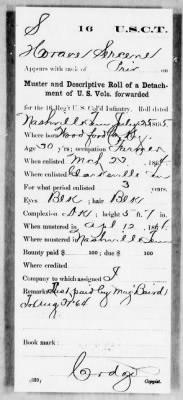 S 16 U.S.C.T.
Horace Greene
Appears with rank of Priv on
Muster and Descriptive Roll of a Detachment of U. S. Vols. forwarded
for the 16 Reg't U. S. Col'd Infantry. Roll dated
Nashville Tenn July 25, 1865
Where born Woodford Co Ky
Age 30 y'rs; occupation Farmer
When enlisted Mch 23, 1864
Where enlisted Clarksville Tn
For what period enlisted 3 years.
Eyes Blk; hair Blk
Complexion Blk; height 5 ft. 7 in.
When mustered in Apl 12, 1864
Where mustered in Nashville Tenn
Bounty paid $ 100; due $ 100
Where credited
Company to which assigned I
Remarks: Last paid by Maj Baird
To Aug 31 64
Book mark:
(339) Copyist.